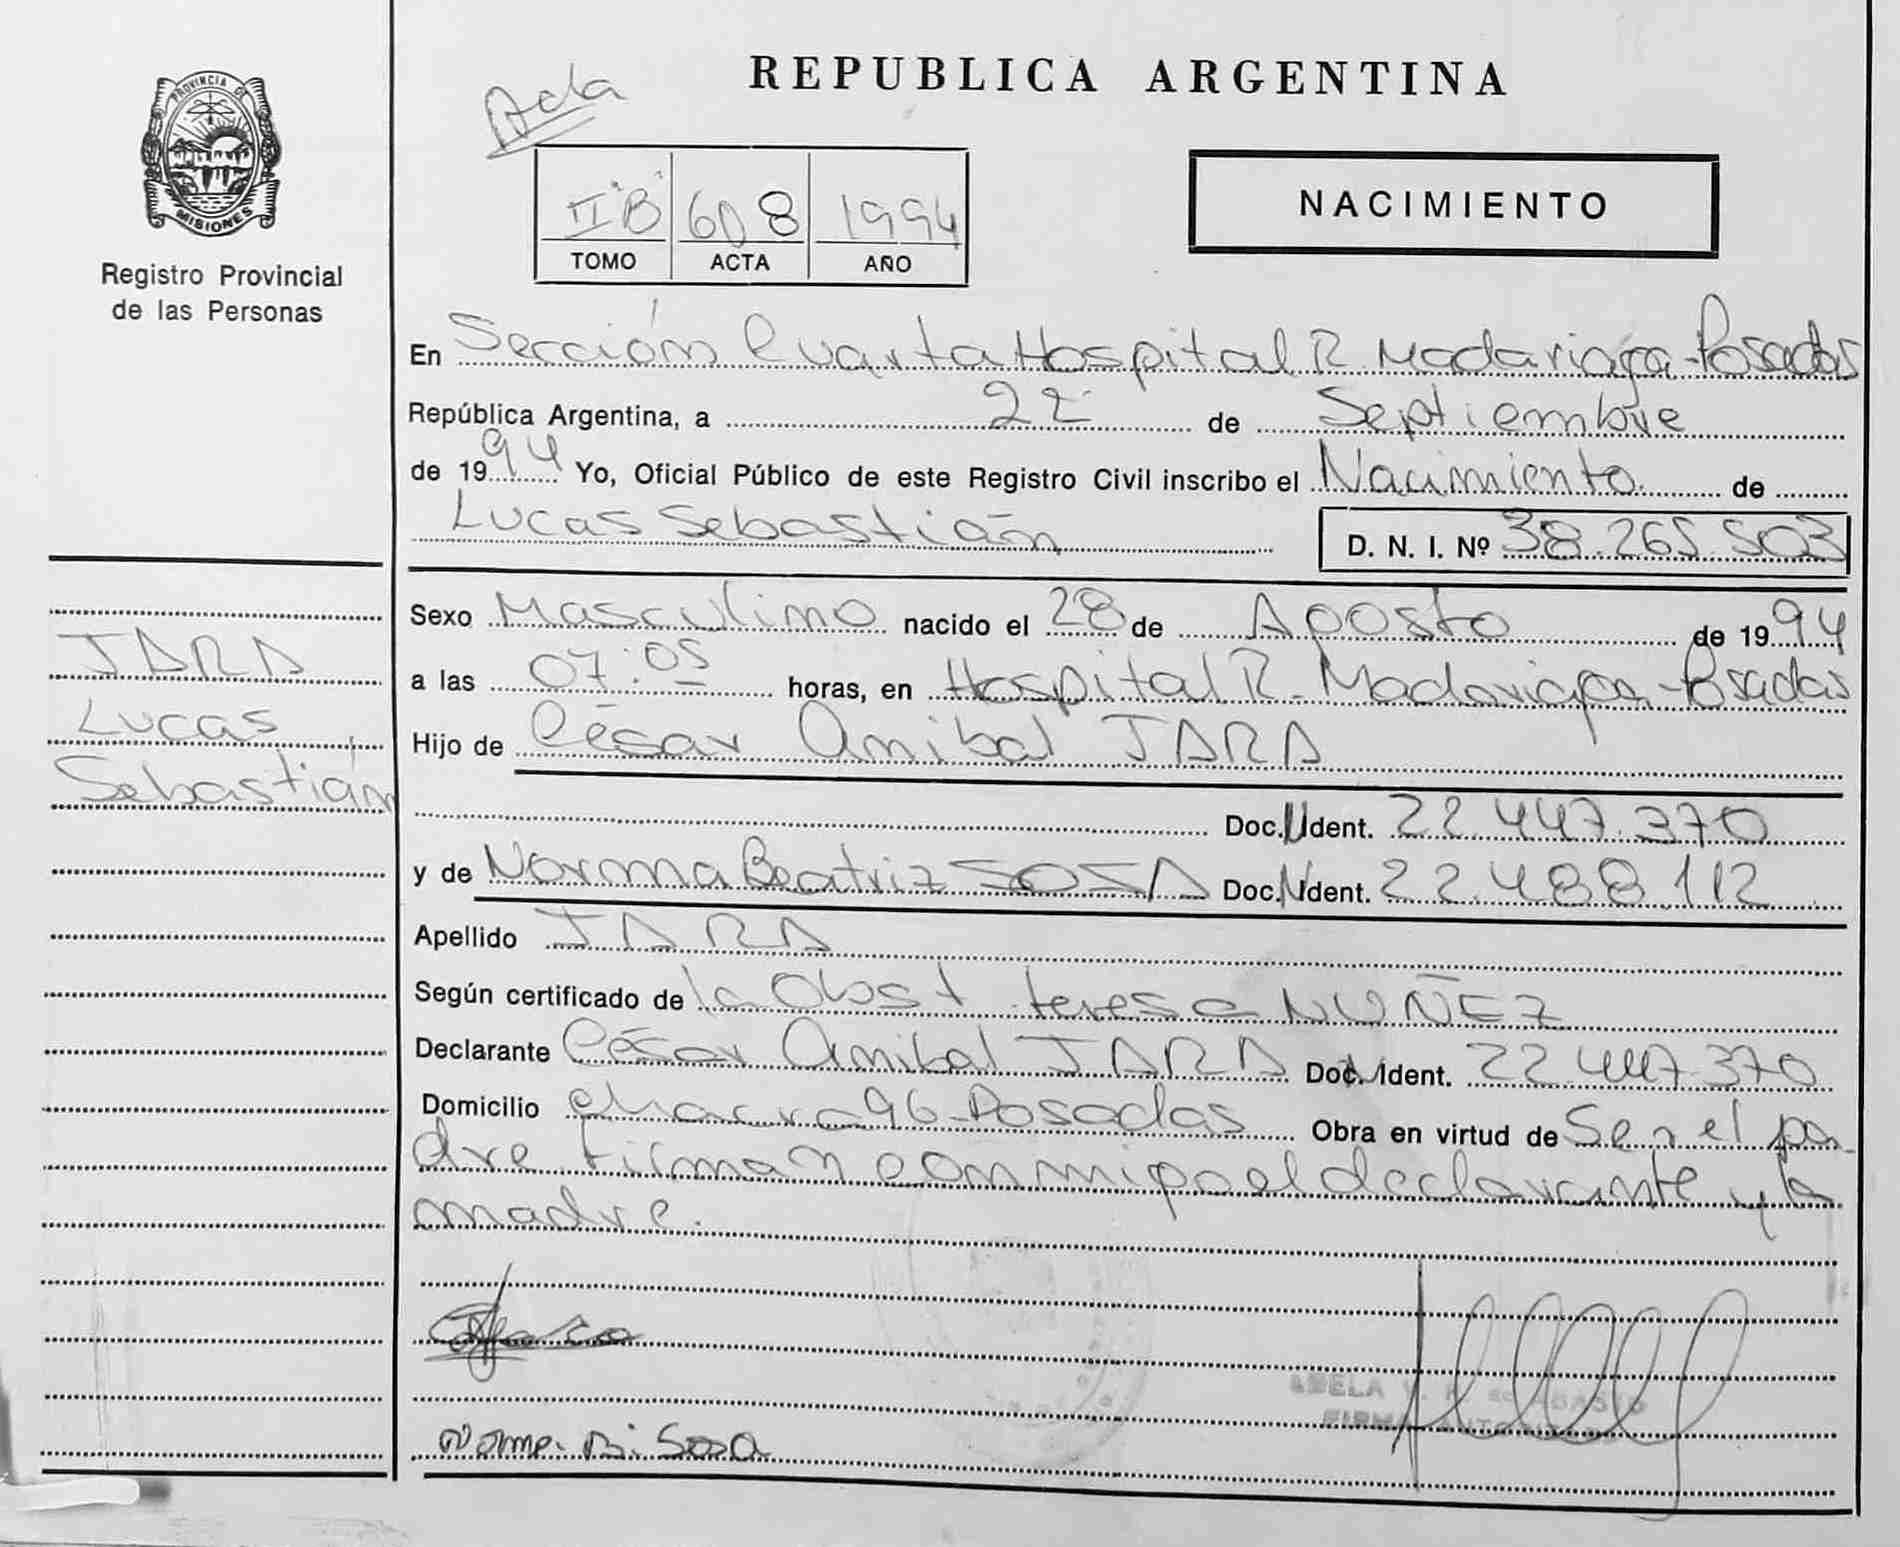 PROVINCIA DE
MISIONES
Registro Provincial
de las Personas
JARA
Lucas
Sebastián
REPUBLICA ARGENTINA
Acta
II "B" 608 1994
TOMO ACTA AÑO
NACIMIENTO
En Sección Cuarta Hospital R. Madariaga - Posadas
República Argentina, a 22 de Septiembre
de 1994 Yo, Oficial Público de este Registro Civil inscribo el Nacimiento de
Lucas Sebastián D. N. I. Nº 38.265.503
Sexo Masculino nacido el 28 de Agosto de 1994
a las 07:05 horas, en Hospital R. Madariaga - Posadas
Hijo de César Anibal JARA
Doc. Ident. 22.447.370
y de Norma Beatriz SOSA Doc. Ident. 22.488.112
Apellido JARA
Según certificado de la Obst. teresa NUÑEZ
Declarante César Anibal JARA Doc. Ident. 22.447.370
Domicilio chacra 96 - Posadas Obra en virtud de Ser el pa-
dre. firman conmigo el declarante y la
madre.
Norma B. Sosa